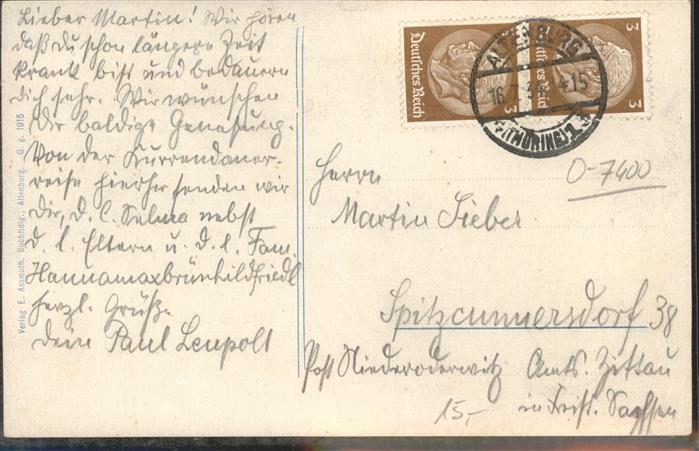 Lieber Martin! Wir hören
daß du schon längere Zeit
krank bist und bedauern
dich sehr. Wir wünschen
dir baldige Genesung.
Von der Kurrendaner-
reise hierher senden wir
dir, d. l. Selma nebst
d. l. Eltern u. d. l. Fam.
Hannamaxbrünhildfriedl
herzl. Grüße
dein Paul Leupolt
Verlag E. Assmuth, Buchhdlg., Altenburg. G. g. 1915
Deutsches Reich
3
Deutsches Reich
3
3
ALTENBURG
16
4-15
(THÜRING) 1
0-7400
Herrn
Martin Sieber
Spitzcunnersdorf 38
Post Niederoderwitz Amts. Zittau
in Sachsen
15,-